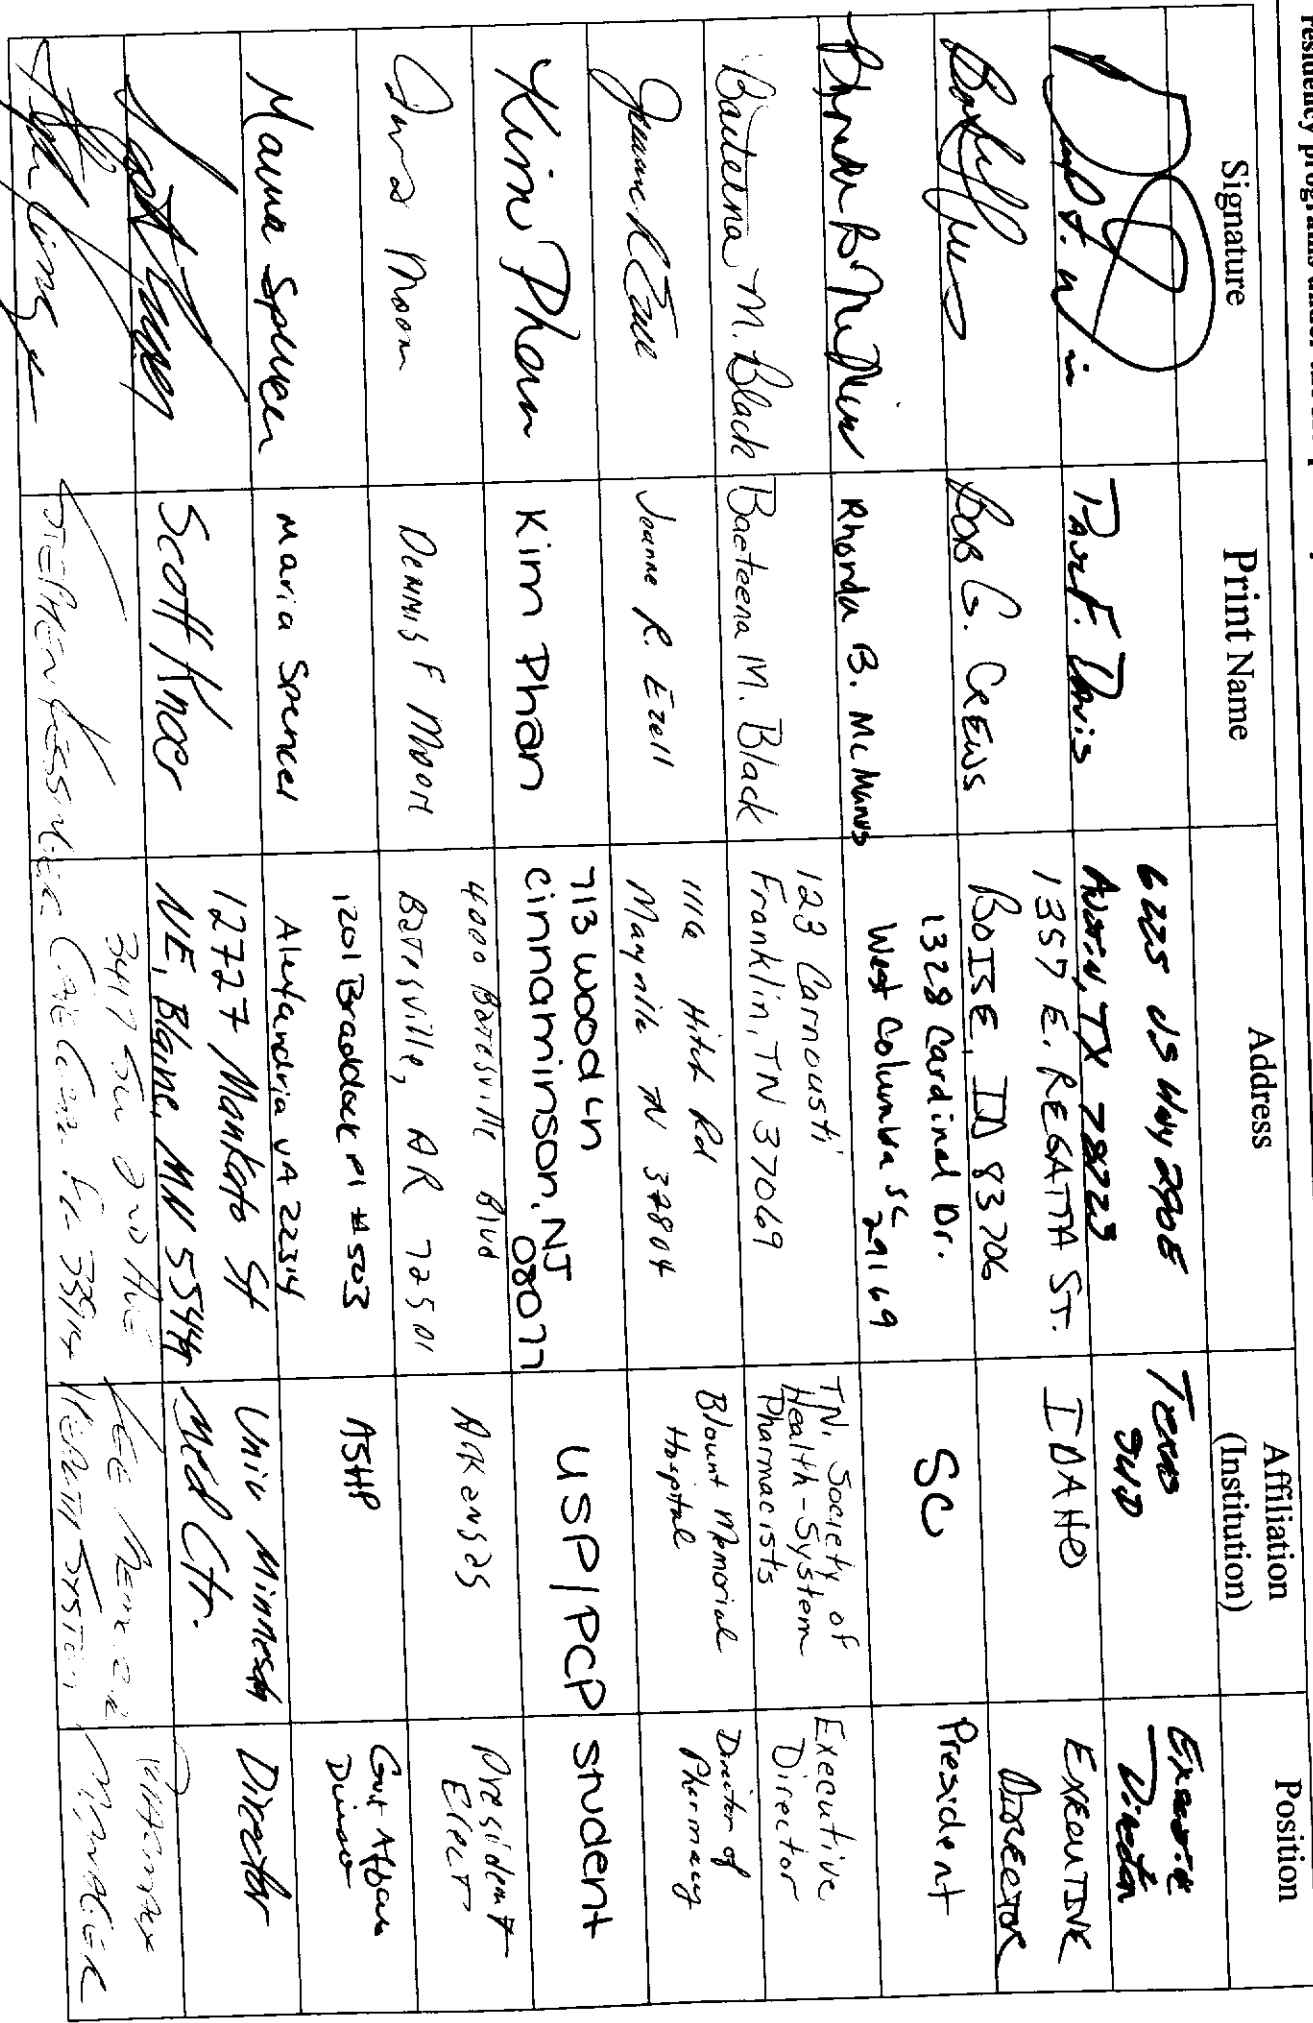 residency programs under
Signature Print Name Address Affiliation (Institution) Position
Paul F. Davis 6225 US Hwy 290E Austin, TX 78723 Texas Executive Director
BOB G. CREWS 1357 E. REGATTA ST. BOISE, ID 83706 IDAHO EXECUTIVE DIRECTOR
Rhonda B. McManus 1328 Cardinal Dr. West Columbia SC 29169 SC President
Baeteena M. Black Baeteena M. Black 123 Carnousti Franklin, TN 37069 TN. Society of Health-System Pharmacists Executive Director
Jeanne R. Ezell 1116 Hitch Rd Maryville TN 37804 Blount Memorial Hospital Director of Pharmacy
Kim Phan Kim Phan 713 wood Ln cinnaminson, NJ 08077 USP/PCP student
Moon Dennis F Moon 4000 Batesville Blvd Batesville, AR 72501 Arkansas President Elect
Maria Spencer Maria Spencer 1201 Braddock Pl #503 Alexandria VA 22314 ASHP Govt Affairs
Scott Knoer 12727 Mankato St NE, Blaine, MN 55449 Univ Minnesota Med Ctr. Director
STEPHEN 3417 SW 2nd AVE CAPE Coral Fl 33914 LEE Memorial HEALTH SYSTEM MANAGER